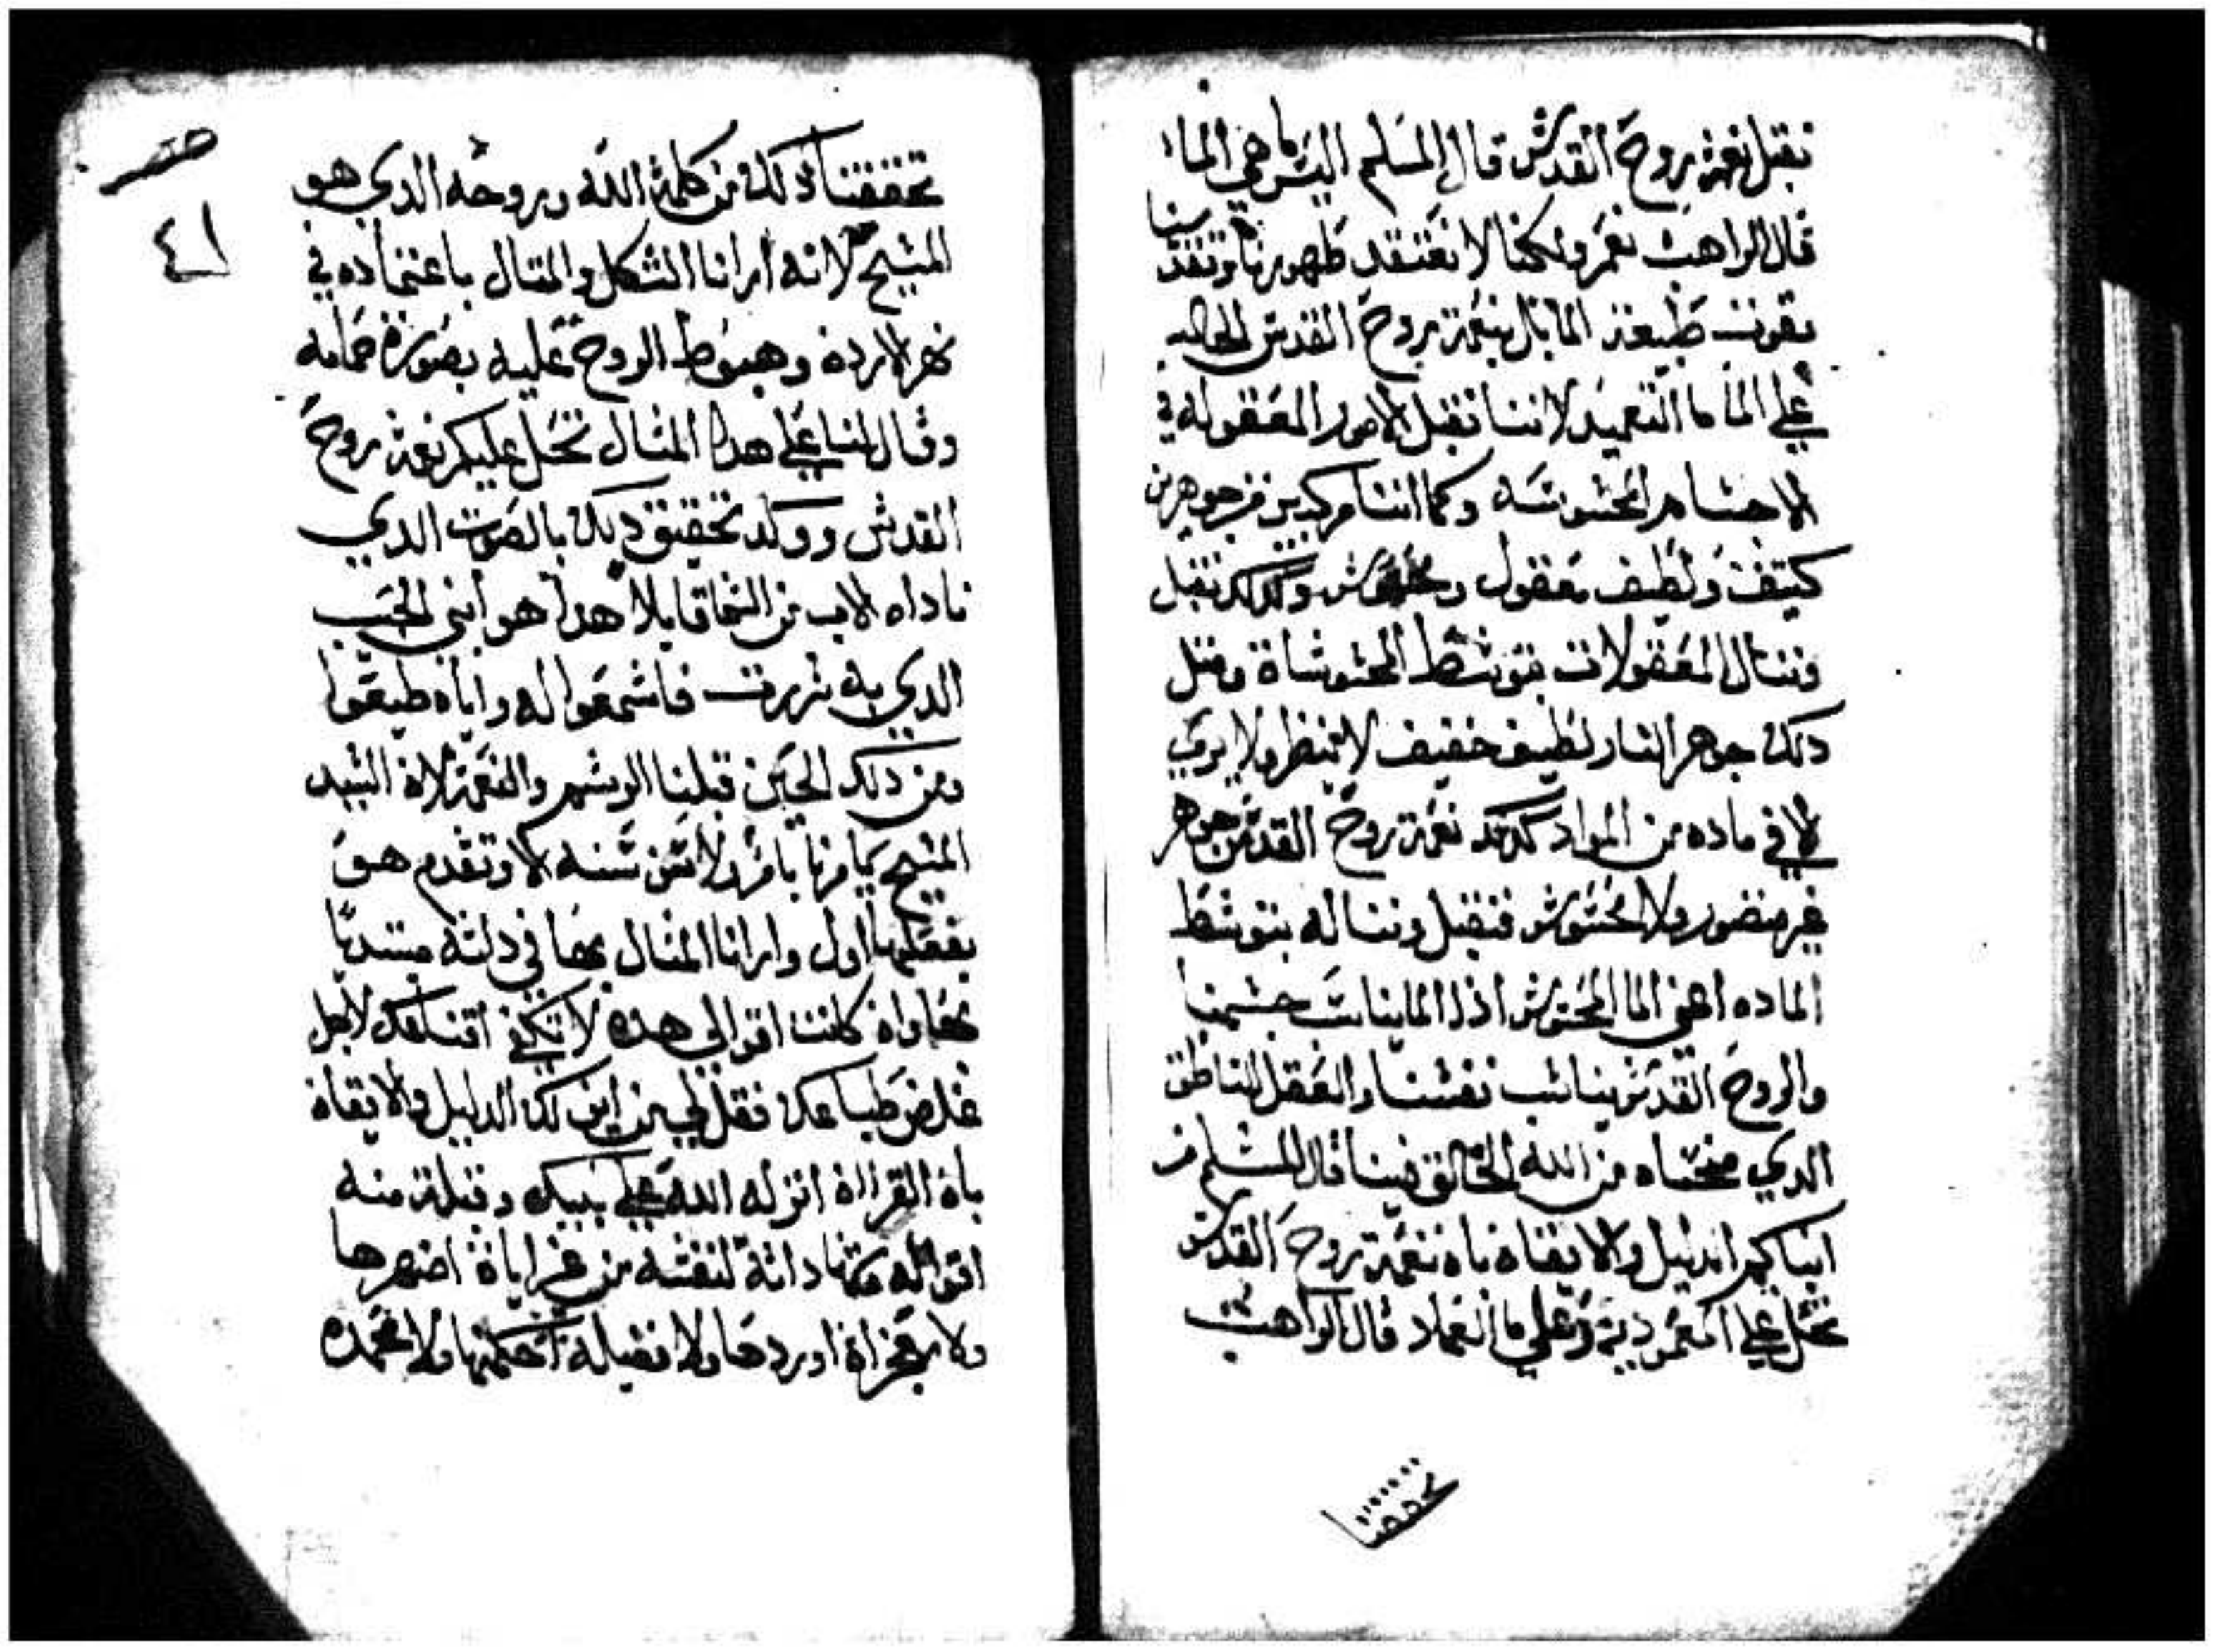 نقبل نعمة بروح القدش قال المسلم اليس ما هي الما
قال الراهب نعم ولكننا لا نعتقد طهورنا وتقديسنا
بقوت طبيعة الما بل بنعمة بروح القدس الحاله
علي الما ما التعميد لاننا نقبل الامور المعقوله في
الاجشام المحشوشه وكما اننا مركبين من جوهرين
كتيف ولطيف معقول ومحشوش وكدلك نقبل
وننال المعقولات بتوشط المحشوشاة ومتل
دلك جوهر النار لطيف خفيف لا ينظر ولا يري
الا في ماده من المواد كدلك نعمة روح القدش جوهر
غير منضور ولا محشوش فنقبل ونناله بتوشط
الماده اعني الما المحشوش اذا الما يناسب جشمنا
والروح القدش يناشب نفشنا والعقل الناطق
الدي منحناه من الله الخالق فينا قال المشلم من
اين لكم الدليل والايقان بان نعمة روح القدش
تحل علي المعموديه وعلي ما العماد قال الراهب
تحققنا
تحققنا دلك من كلمة الله وروحه الدي هو
المشيح لانه ارانا الشكل والمتال باعتماده في
نهر الاردن وهبوط الروح عليه بصورة حمامه
وقال لنا علي هدا المثال تحل عليكم نعمة روح
القدش ووكد تحقيق دلك بالصوت الدي
ناداه الاب من الشما قايلا هدا هو ابني الحبيب
الدي به شررت فاشمعوا له واياه طيعوا
ومن دلك الحين قبلنا الوشم والنعمة لان الشيد
المشيح لم يامرنا بامر ولا شن شنه الا وتقدم هو
بفعلها اول وارانا المثال بها في داته مبتديا
بها وان كانت اقوالي هده لا تكفي اقناعك لاجل
غلاض طباعك فقل لي من اين لك الدليل والايقان
بان القران انزله الله علي نبيك وقبلة منه
اقواله وشهادته لنفشه من غير اياة اضهرها
ولا معجزاة اوردها ولا فضيلة احكمها ولا محمده
٤١